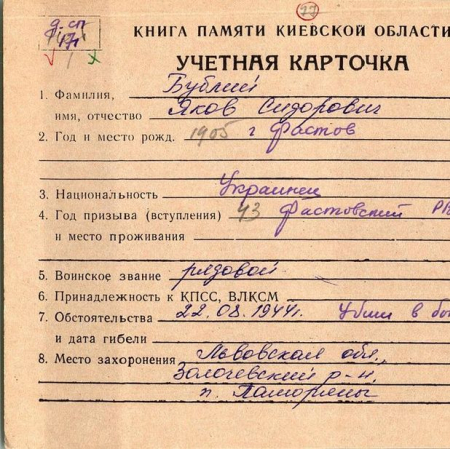 22
д. сп
КНИГА ПАМЯТИ КИЕВСКОЙ ОБЛАСТИ
УЧЕТНАЯ КАРТОЧКА
1. Фамилия, Бублий
имя, отчество Яков Сидорович
2. Год и место рожд. 1905 г Фастов
3. Национальность Украинец
4. Год призыва (вступления) 43 Фастовский
и место проживания
5. Воинское звание рядовой
6. Принадлежность к КПСС, ВЛКСМ
7. Обстоятельства 22.08.1944г. Убит в
и дата гибели
8. Место захоронения Львовская обл.,
Золочевский р-н,
п. Поморяны